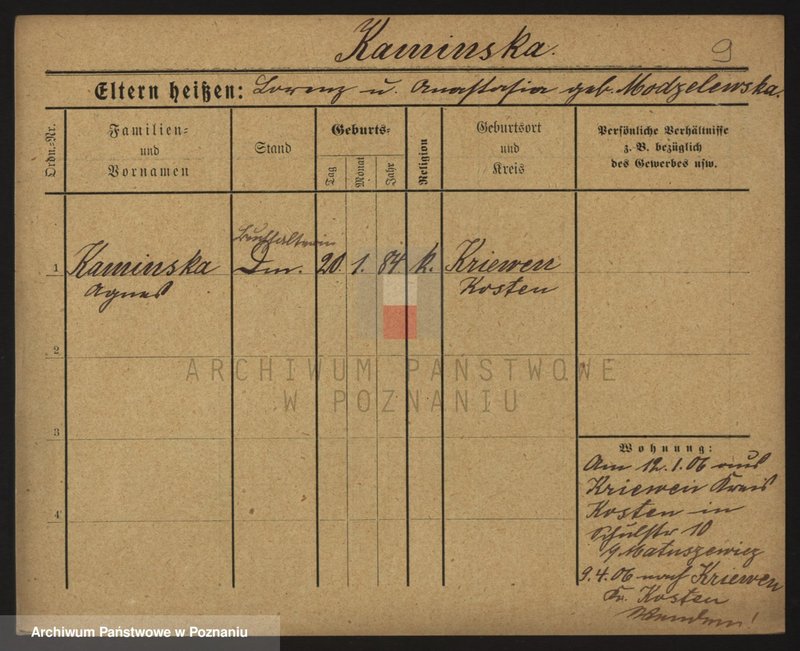 Kaminska.
9
Eltern heißen: Lorenz u. Anastasia geb. Modzelewska.
Ordn.-Nr.
Familien-
und
Vornamen
Stand
Geburts-
Tag
Monat
Jahr
Religion
Geburtsort
und
Kreis
Persönliche Verhältnisse
z. B. bezüglich
des Gewerbes usw.
Buchhalterin
1 Kaminska 20. 1. 84 k. Kriewen
Agnes Kosten
2
ARCHIWUM PAŃSTWOWE
W POZNANIU
3
4
Wohnung:
Am 12.1.06 aus
Kriewen Kreis
Kosten in
Schulstr 10
Matuszewicz
9.4.06 nach Kriewen
Kr. Kosten
Wenden!
Archiwum Państwowe w Poznaniu